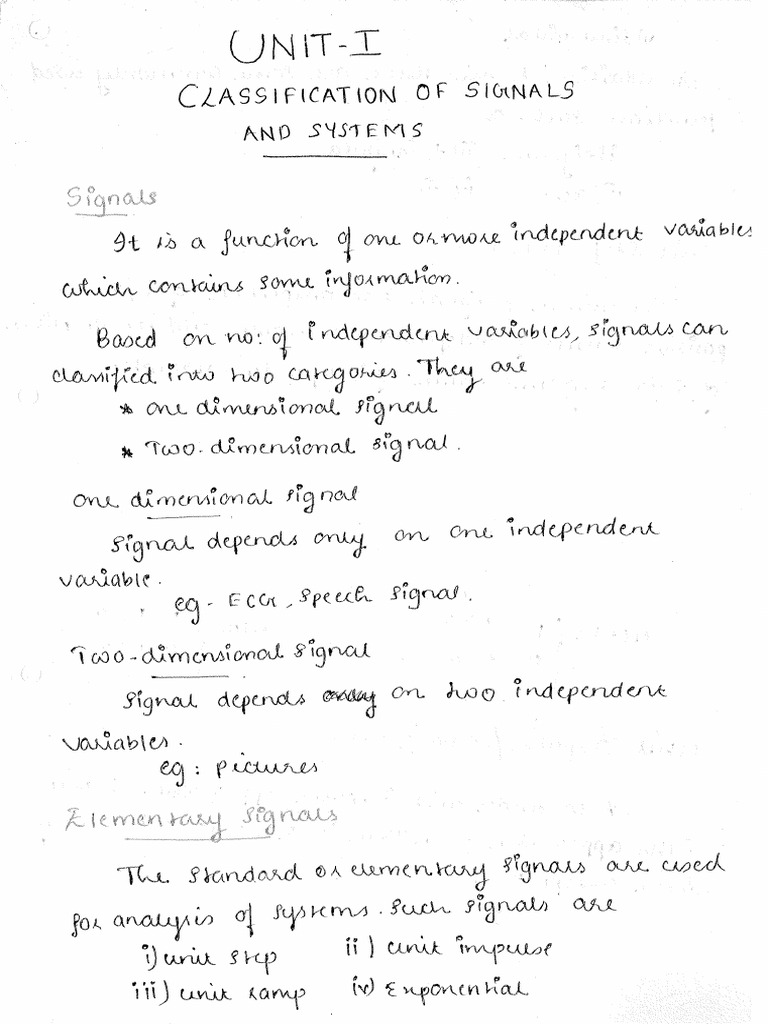 UNIT-I
CLASSIFICATION OF SIGNALS
AND SYSTEMS
Signals
It is a function of one or more independent variables
which contains some information.
Based on no: of independent variables, signals can
classified into two categories. They are
* one dimensional signal
* Two-dimensional signal.
One dimensional signal
Signal depends only on one independent
variable.
eg- ECG, Speech Signal.
Two-dimensional signal
Signal depends on two independent
variables.
eg: pictures
Elementary signals
The standard or elementary signals are used
for analysis of systems. Such signals are
i) unit step ii) unit impulse
iii) unit ramp iv) Exponential